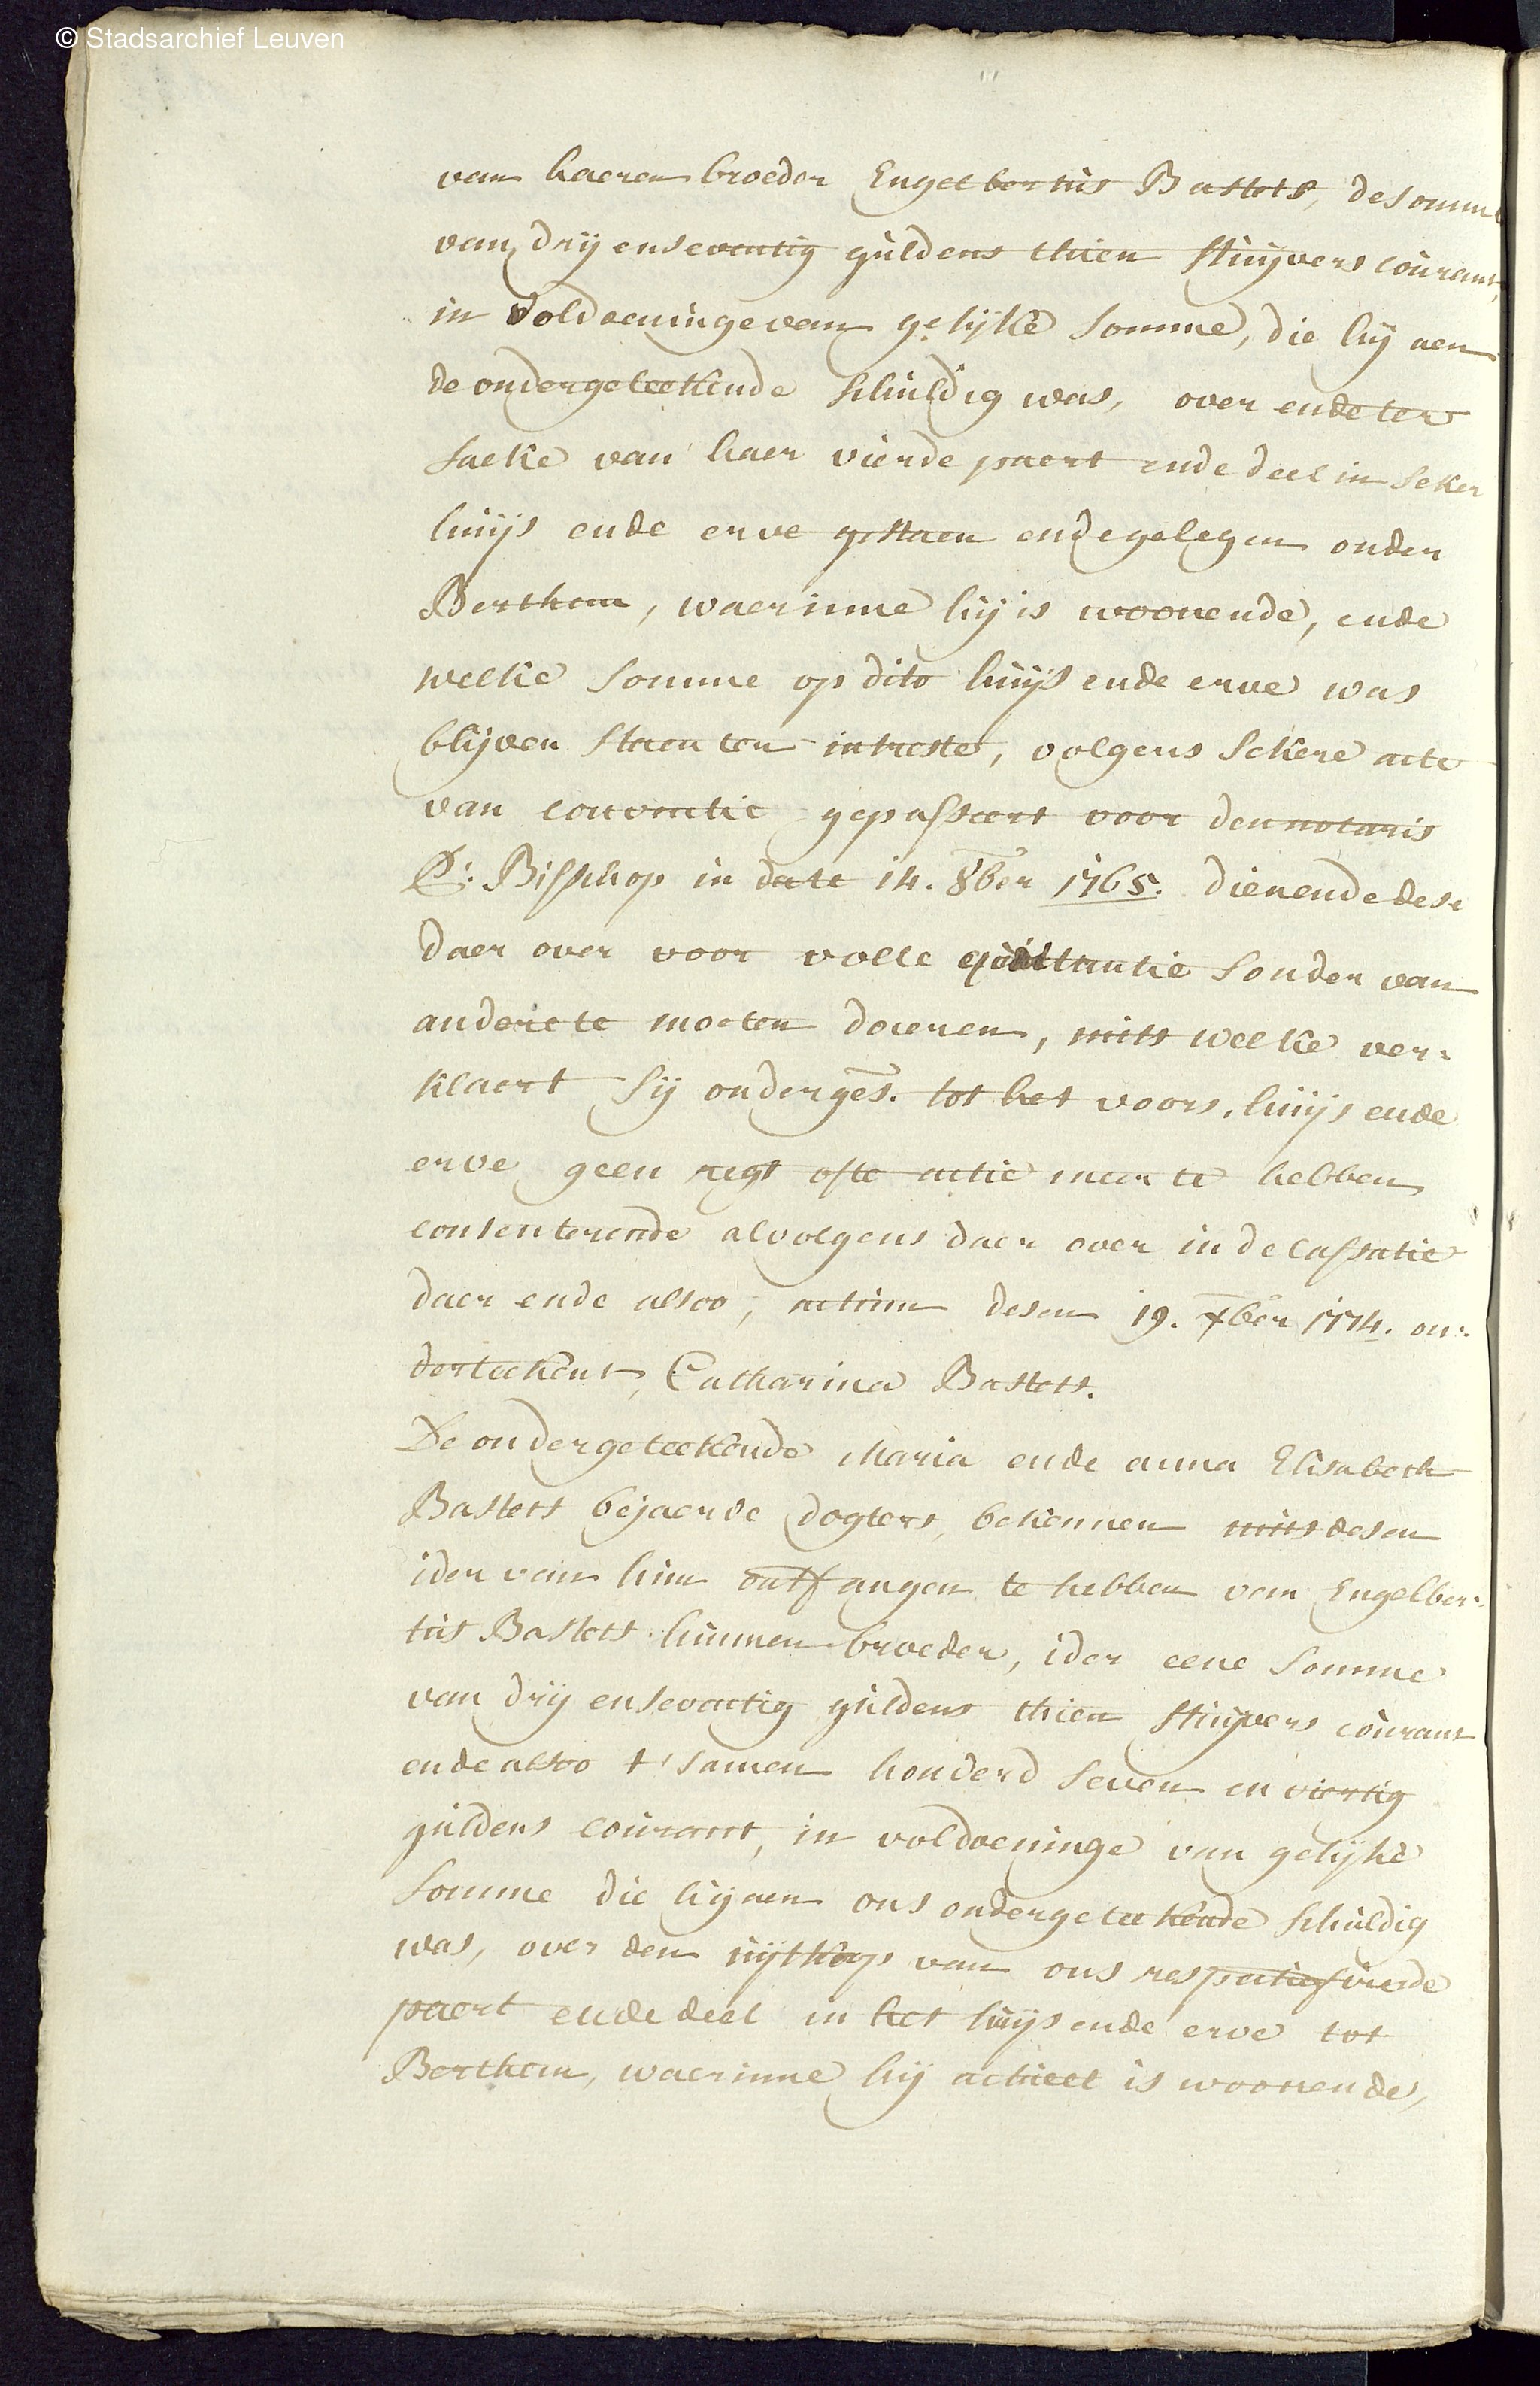 © Stadsarchief Leuven
van haeren broeder Engelbertus Bastets, de somme
van drij enseventig guldens thien stuijvers courant,
in voldoeninge van gelijke somme, die hij aen
de ondergeteekende schuldig was, over ende ter
saeke van haer vierde paert ende deel in seker
huijs ende erve gestaen ende gelegen onder
Berthem, waerinne hij is woonende, ende
welke somme op dito huijs ende erve was
blijven staen ten intreste, volgens sekere acte
van conventie gepasseert voor den notaris
Bisschop in date 14. 8ber 1765. dienende dese
daer over voor volle quittantie sonder van
andere te moeten doceren, mits welke ver-
klaert sij onderges. tot het voors. huijs ende
erve geen regt ofte actie meer te hebben
consenterende alvolgens daer over in de cassatie
daer ende alsoo, actum desen 19. xber 1774. on-
derteekent, Catharina Bastets.
De ondergeteekende Maria ende anna Elisabeth
Bastets bejaerde dogters, bekennen mits desen
ider van hun ontfangen te hebben van Engelber-
tus Bastets hunnen broeder, ider eene somme
van drij enseventig guldens thien stuijvers courant
ende alsoo t'samen honderd seven en viertig
guldens courant, in voldoeninge van gelijke
somme die hij aen ons ondergeteekende schuldig
was, over den uijtkoop van ons respectief vierde
paert ende deel in het huijs ende erve tot
Berthem, waerinne hij actueel is woonende,